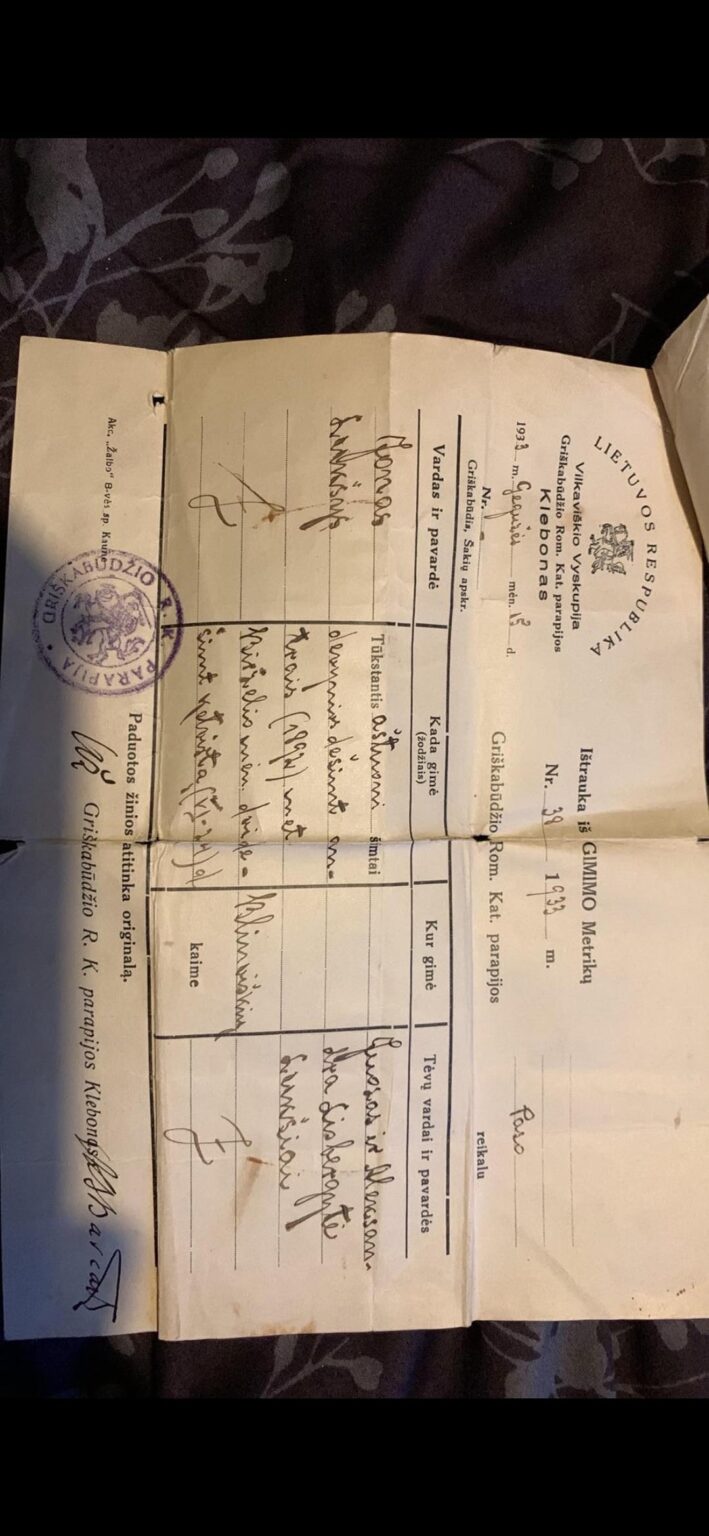 LIETUVOS RESPUBLIKA
Vilkaviškio Vyskupija
Griškabūdžio Rom. Kat. parapijos
Klebonas
1933 m. Gegužės mėn. 15 d.
Nr.
Griškabūdis, Šakių apskr.
Ištrauka iš GIMIMO Metrikų
Nr. 38 1933 m.
Griškabūdžio Rom. Kat. parapijos
Paso
reikalu
Vardas ir pavardė
Kada gimė
(žodžiais)
Kur gimė
Tėvų vardai ir pavardės
Jonas
Lenkšys
Tūkstantis aštuoni šimtai
devynios dešimt an-
trais (1892) met
Birželio mėn. dvide-
šimt ketvirtą (VI-24) d
kaime
Juozas ir Aleksan-
dra
Lenkšiai
Paduotos žinios atitinka originalą.
Griškabūdžio R. K. parapijos Klebonas
GRIŠKABŪDŽIO R. K. PARAPIJA
Akc. „Žaibo“ B-vės sp. Kaune